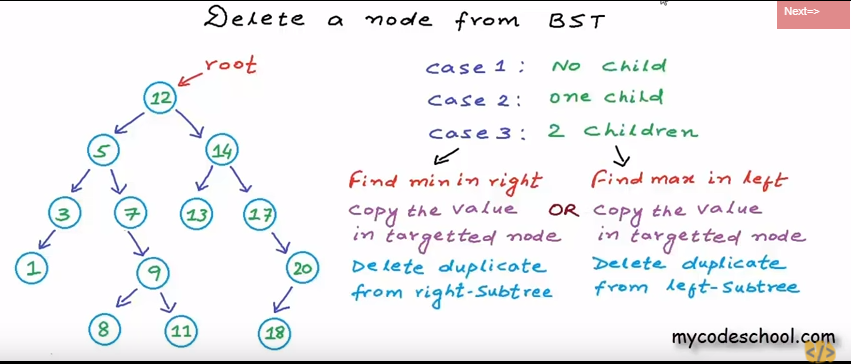 Delete a node from BST
Next=>
root
12
5
14
3
7
13
17
1
9
20
8
11
18
case 1 : No child
case 2 : one child
case 3 : 2 children
Find min in right
Copy the value
in targetted node
Delete duplicate
from right-subtree
OR
Find max in left
Copy the value
in targetted node
Delete duplicate
from left-subtree
mycodeschool.com
</>